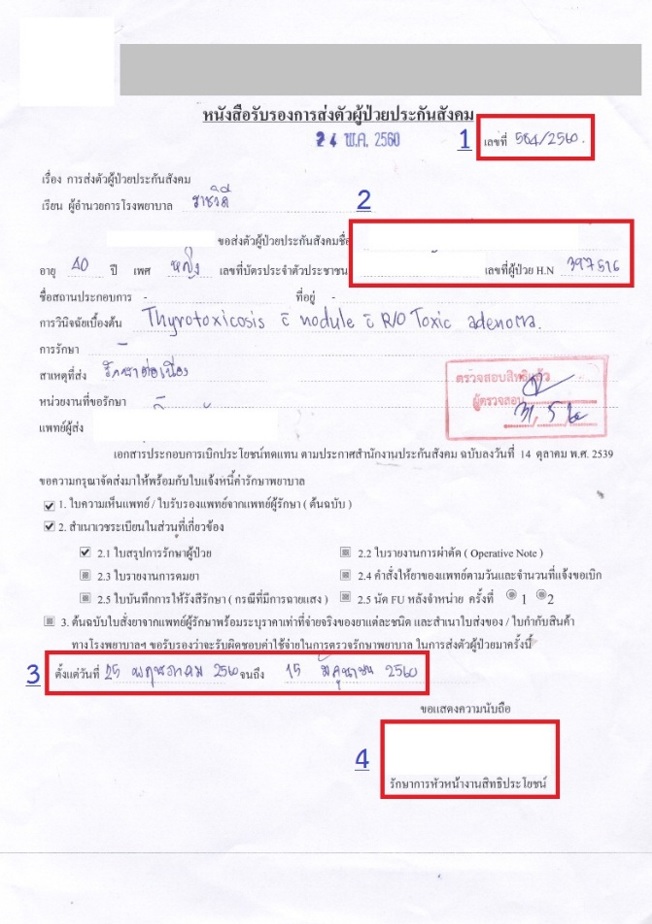 หนังสือรับรองการส่งตัวผู้ป่วยประกันสังคม
24 พ.ค. 2560 1 เลขที่ 564/2560.
เรื่อง การส่งตัวผู้ป่วยประกันสังคม
เรียน ผู้อำนวยการโรงพยาบาล ราชวิถี
2
ขอส่งตัวผู้ป่วยประกันสังคมชื่อ
อายุ 40 ปี เพศ หญิง เลขที่บัตรประจำตัวประชาชน เลขที่ผู้ป่วย H.N 397516
ชื่อสถานประกอบการ - ที่อยู่ -
การวินิจฉัยเบื้องต้น Thyrotoxicosis c̄ nodule c̄ R/O Toxic adenoma.
การรักษา -
สาเหตุที่ส่ง รักษาต่อเนื่อง
ตรวจสอบสิทธิแล้ว
ผู้ตรวจสอบ
หน่วยงานที่ขอรักษา -
แพทย์ผู้ส่ง
เอกสารประกอบการเบิกประโยชน์ทดแทน ตามประกาศสำนักงานประกันสังคม ฉบับลงวันที่ 14 ตุลาคม พ.ศ. 2539
ขอความกรุณาจัดส่งมาให้พร้อมกับใบแจ้งหนี้ค่ารักษาพยาบาล
1. ใบความเห็นแพทย์ / ใบรับรองแพทย์จากแพทย์ผู้รักษา ( ต้นฉบับ )
2. สำเนาเวชระเบียนในส่วนที่เกี่ยวข้อง
2.1 ใบสรุปการรักษาผู้ป่วย 2.2 ใบรายงานการผ่าตัด ( Operative Note )
2.3 ใบรายงานการดมยา 2.4 คำสั่งให้ยาของแพทย์ตามวันและจำนวนที่แจ้งขอเบิก
2.5 ใบบันทึกการให้รังสีรักษา ( กรณีที่มีการฉายแสง ) 2.5 นัด FU หลังจำหน่าย ครั้งที่ 1 2
3. ต้นฉบับใบสั่งยาจากแพทย์ผู้รักษาพร้อมระบุราคาเท่าที่จ่ายจริงของยาแต่ละชนิด และสำเนาใบส่งของ / ใบกำกับสินค้า
ทางโรงพยาบาลฯ ขอรับรองว่าจะรับผิดชอบค่าใช้จ่ายในการตรวจรักษาพยาบาล ในการส่งตัวผู้ป่วยมาครั้งนี้
3 ตั้งแต่วันที่ 25 พฤษภาคม 2560 จนถึง 15 มิถุนายน 2560
ขอแสดงความนับถือ
4
รักษาการหัวหน้างานสิทธิประโยชน์